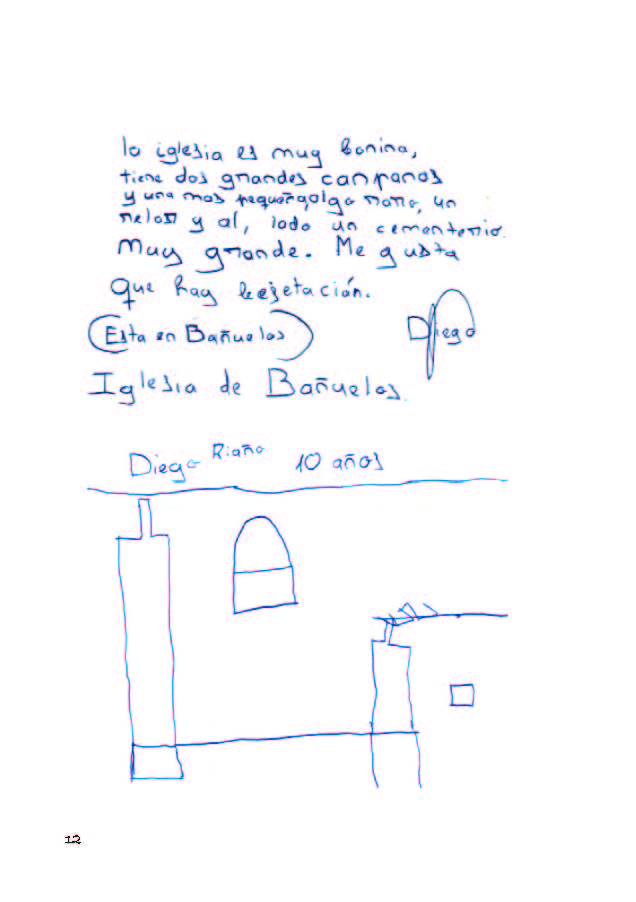 la iglesia es muy bonina,
tiene dos grandes campanas
y una mas pequeña, algo, un
reloj y al, lado un cementerio.
Muy grande. Me gusta
que hay bejetación.
(Esta en Bañuelos)
Diego
Iglesia de Bañuelos.
Diego Riaño 10 años
12